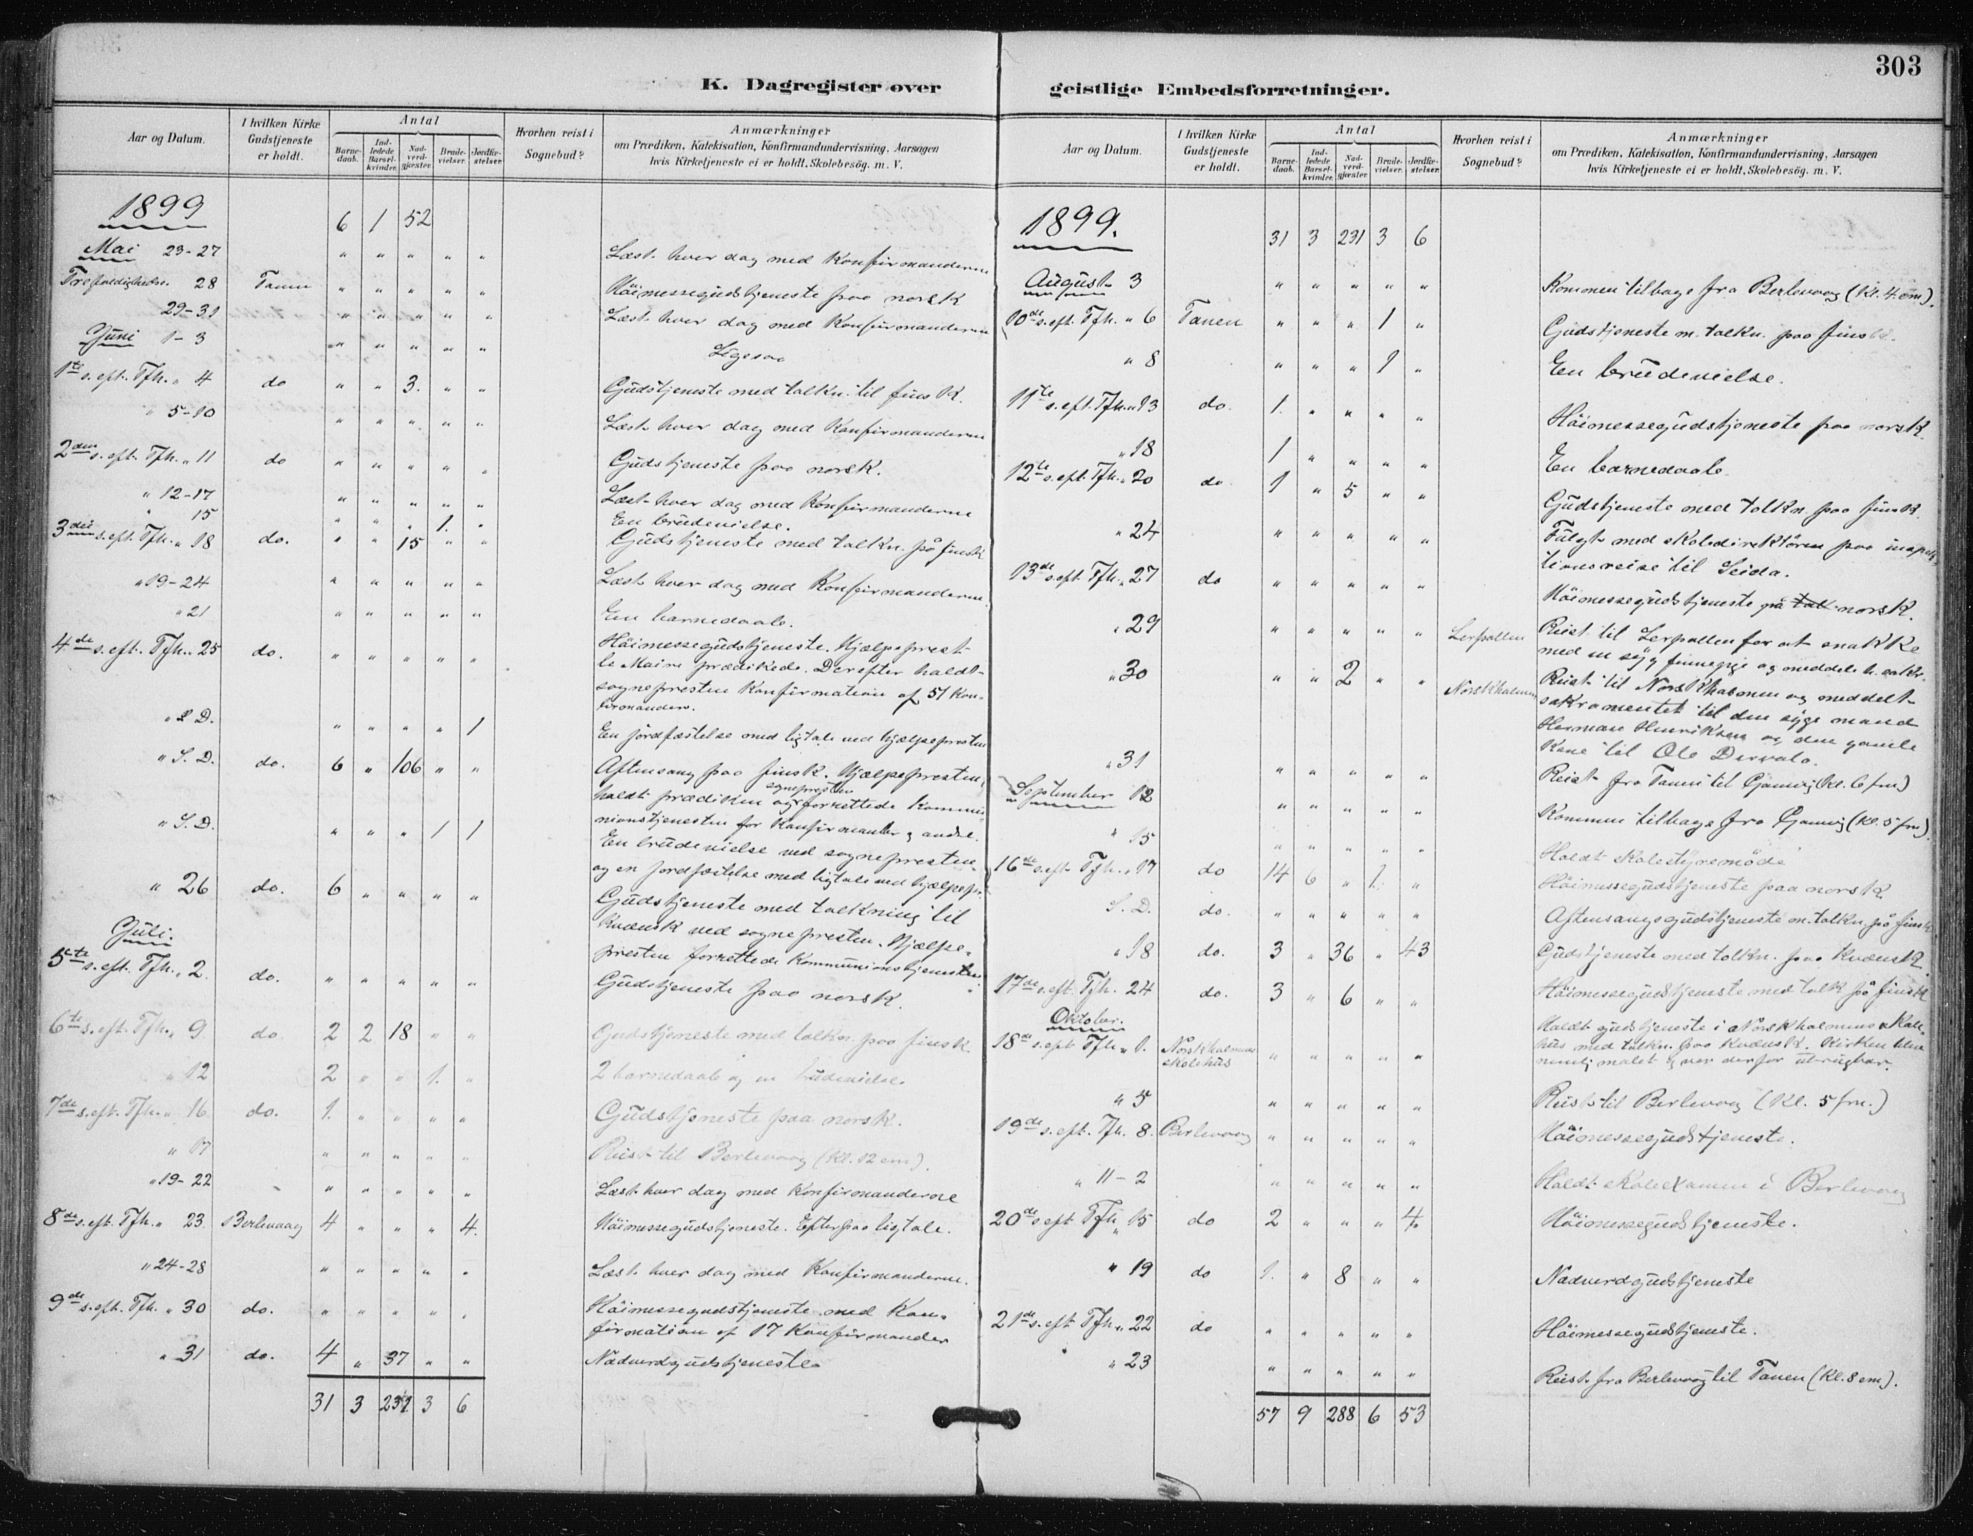 303
K. Dagregister over geistlige Embedsforretninger.
Aar og Datum.
I hvilken Kirke Gudstjeneste er holdt.
Antal
Barne-daab.
Ind-ledede Barsel-kvinder.
Nad-verd-gjester.
Brude-vielser.
Jordfæ-stelser.
Hvorhen reist i Sognebud?
Anmærkninger
om Prædiken, Katekisation, Konfirmandundervisning, Aarsagen
hvis Kirketjeneste ei er holdt, Skolebesög. m. V.
1899 6 1 52
Mai 23-27 " " " " " Læst hver dag med Konfirmanderne
Trefoldighetss. 28 Tanen " " " " " Höimessegudstjeneste paa norsk
29-31 " " " " " Læst hver dag med Konfirmanderne
Juni 1-3 " " " " " Ligesaa
1ste s. eft. Tfh. " 4 do " " 3. " " Gudstjeneste med tolkn. til finsk.
" 5-10 " " " " " Læst hver dag med Konfirmanderne
2den s. eft. Tfh. " 11 do " " " " " Gudstjeneste paa norsk.
" 12-17 " " " " " Læst hver dag med Konfirmanderne
" 15 " " " 1. " En brudevielse.
3die s. eft. Tfh. " 18 do. " " 15 " " Gudstjeneste med tolkn. på finsk
" 19-24 " " " " " Læst hver dag med Konfirmanderne.
" 21 " " " " " En barnedaab.
4de s. eft. Tfh. " 25 do. " " " " " Höimessegudstjeneste. Hjælpeprest
le Maire prædikede. Derefter holdt
sognepresten Konfirmation af 51 Kon-
firmander.
" S. D. " " " " 1 En jordfæstelse med ligtale ved hjælpepresten
" S. D. do. 6 " 106 " " Aftensang paa finsk. Hjælpepresten
holdt prædiken og sognepresten forrettede Kommu-
nionstjenesten for Konfirmander & andre.
" S. D. " " " 1 1 En brudevielse ved sognepresten
og en jordfæstelse med ligtale ved hjælpepr.
" 26 do. 6 " " " " Gudstjeneste med tolkning til
kvænsk ved sognepresten. Hjælpe-
presten forrettede Kommunionstjenesten.
Juli.
5te s. eft. Tfh. " 2. do. " " " " " Gudstjeneste paa norsk.
6te s. eft. Tfh. " 9 do. 2 2 18 " " Gudstjeneste med tolkn. paa finsk
" 12 2 " " 1. " 2 barnedaab og en brudevielse
7de s. eft. Tfh. " 16 do. 1. " " " " Gudstjeneste paa norsk.
" 17 " " " " " Reist til Berlevaag (Kl. 12 em).
" 19-22 " " " " " Læst hver dag med Konfirmanderne
8de s. eft. Tfh. " 23. Berlevaag 4 " " " 4. Höimessegudstjeneste. Efterpaa ligtale.
" 24-28 " " " " " Læst hver dag med Konfirmanderne.
9de s. eft. Tfh. " 30 do. " " " " " Höimessegudstjeneste med Kon-
firmation af 17 Konfirmander
" 31 do. 4 " 37 " " Nadverdgudstjeneste
31 3 231 3 6
Aar og Datum.
I hvilken Kirke Gudstjeneste er holdt.
Antal
Barne-daab.
Ind-ledede Barsel-kvinder.
Nad-verd-gjester.
Brude-vielser.
Jordfæ-stelser.
Hvorhen reist i Sognebud?
Anmærkninger
om Prædiken, Katekisation, Konfirmandundervisning, Aarsagen
hvis Kirketjeneste ei er holdt, Skolebesög. m. V.
1899. 31 3 231 3 6
August 3 " " " " " Kommen tilbage fra Berlevaag (Kl. 4 em).
10de s. eft. Tfh. " 6 Tanen " " " 1 " Gudstjeneste m. tolkn. paa finsk.
" 8 " " " 1 " En brudevielse.
11te s. eft. Tfh. " 13 do. 1. " " " " Höimessegudstjeneste paa norsk.
" 18 1 " " " " En barnedaab.
12te s. eft. Tfh. " 20 do. 1 " 5 " " Gudstjeneste med tolkn. paa finsk.
" 24 " " " " " Fulgt med skoledirektören paa inspek-
tionsreise til Seida.
13de s. eft. Tfh. " 27 do " " " " " Höimessegudstjeneste på tolk norsk.
" 29 " " " " " Lerpollen Reist til Lerpollen for at snakke
med en syg finnepige og meddele h. sakr.
" 30 " " 2 " " Norskholmen Reist til Norskholmen og meddelt
sakramentet til den syge mand
Herman Henriksen og den gamle
Kone til Ole
" 31 " " " " " Reist fra Tanen til Gamvig (Kl. 6 fm)
September 12 " " " " " Kommen tilbage fra Gamvig (Kl. 5 fm).
" 15 " " " " " Holdt skolestyremöde
16de s. eft. Tfh. " 17 do 14 6 " 1. " Höimessegudstjeneste paa norsk
S. D. do. " " " " " Aftensangsgudstjeneste m. tolkn. på finsk
" 18 do. 3 " 36 " 43 Gudstjeneste med tolkn. paa Kvænsk
17de s. eft. Tfh. 24 do. 3 " 6 " " Höimessegudstjeneste med tolk på finsk
Oktober.
18de s. eft. Tfh. " 1. Norskholmens skolehus " " " " " Holdt gudstjeneste i Norskholmens skole-
hus med tolkn. paa Kvænsk. Kirken blev
nemlig malet & var derfor ubrugbar.
" 5 " " " " " Reist til Berlevaag (Kl. 5 fm.)
19de s. eft. Tfh. 8. Berlevaag " " " " " Höimessegudstjeneste.
" 11-2 " " " " " Holdt skoleexamen i Berlevaag
20de s. eft. Tfh. " 15 do 2 " " " 4 Höimessegudstjeneste.
" 19 do 1. " 8 " " Nadverdgudstjeneste
21de s. eft. Tfh. " 22 do " " " " " Höimessegudstjeneste.
" 23 " " " " " Reist fra Berlevaag til Tanen (Kl. 8 em).
57 9 288 6 53